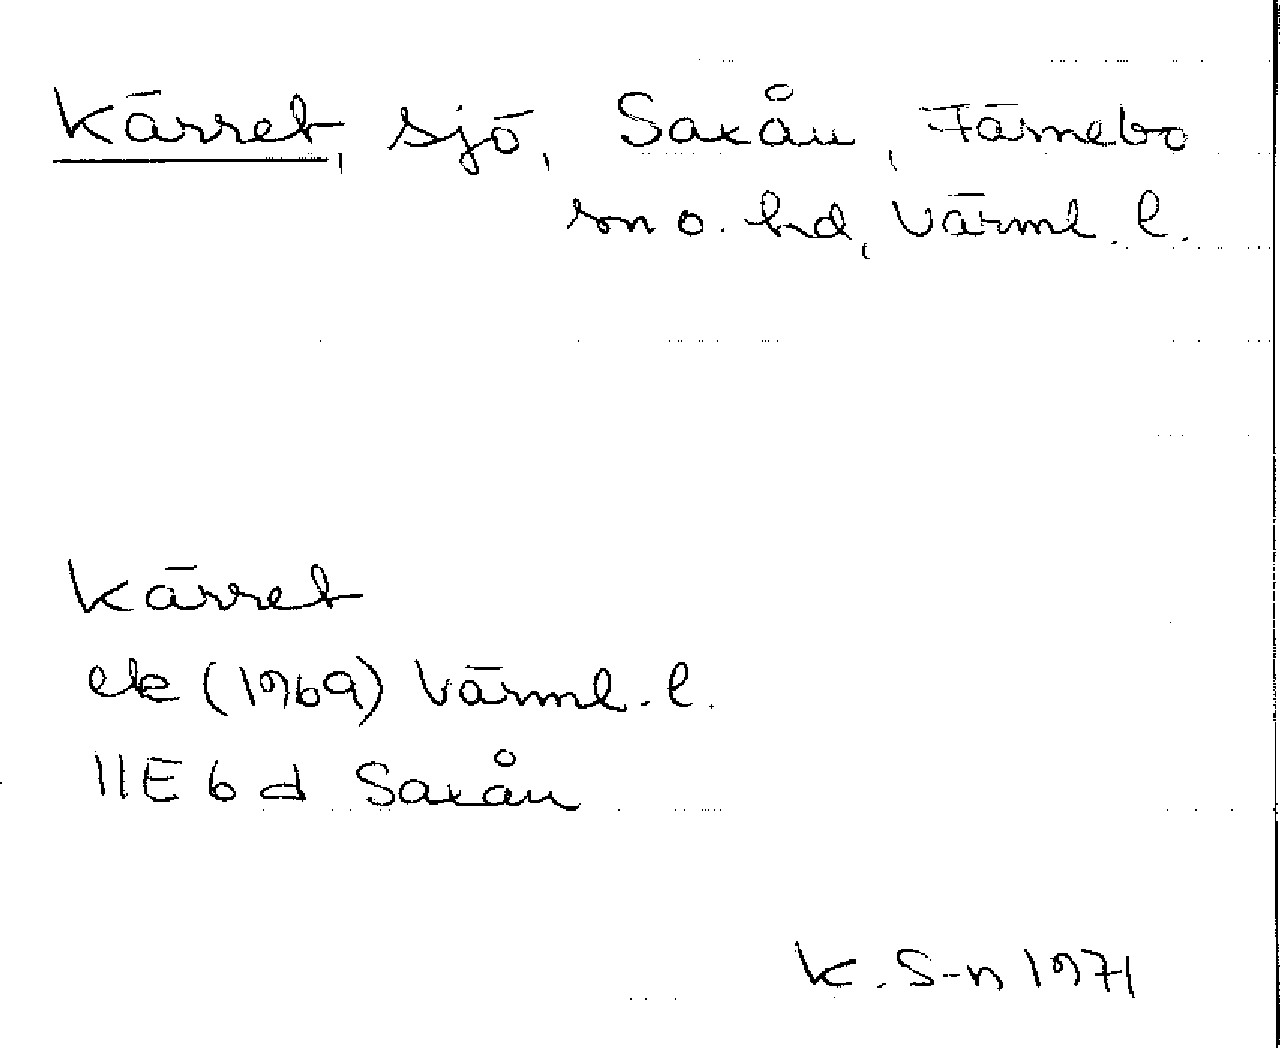 Kärret, sjö, Saxån, Färnebo
sn o. hd, Värml. l.
Kärret
ek (1969) Värml. l.
11E 6 d Saxån
K. S-n 1971